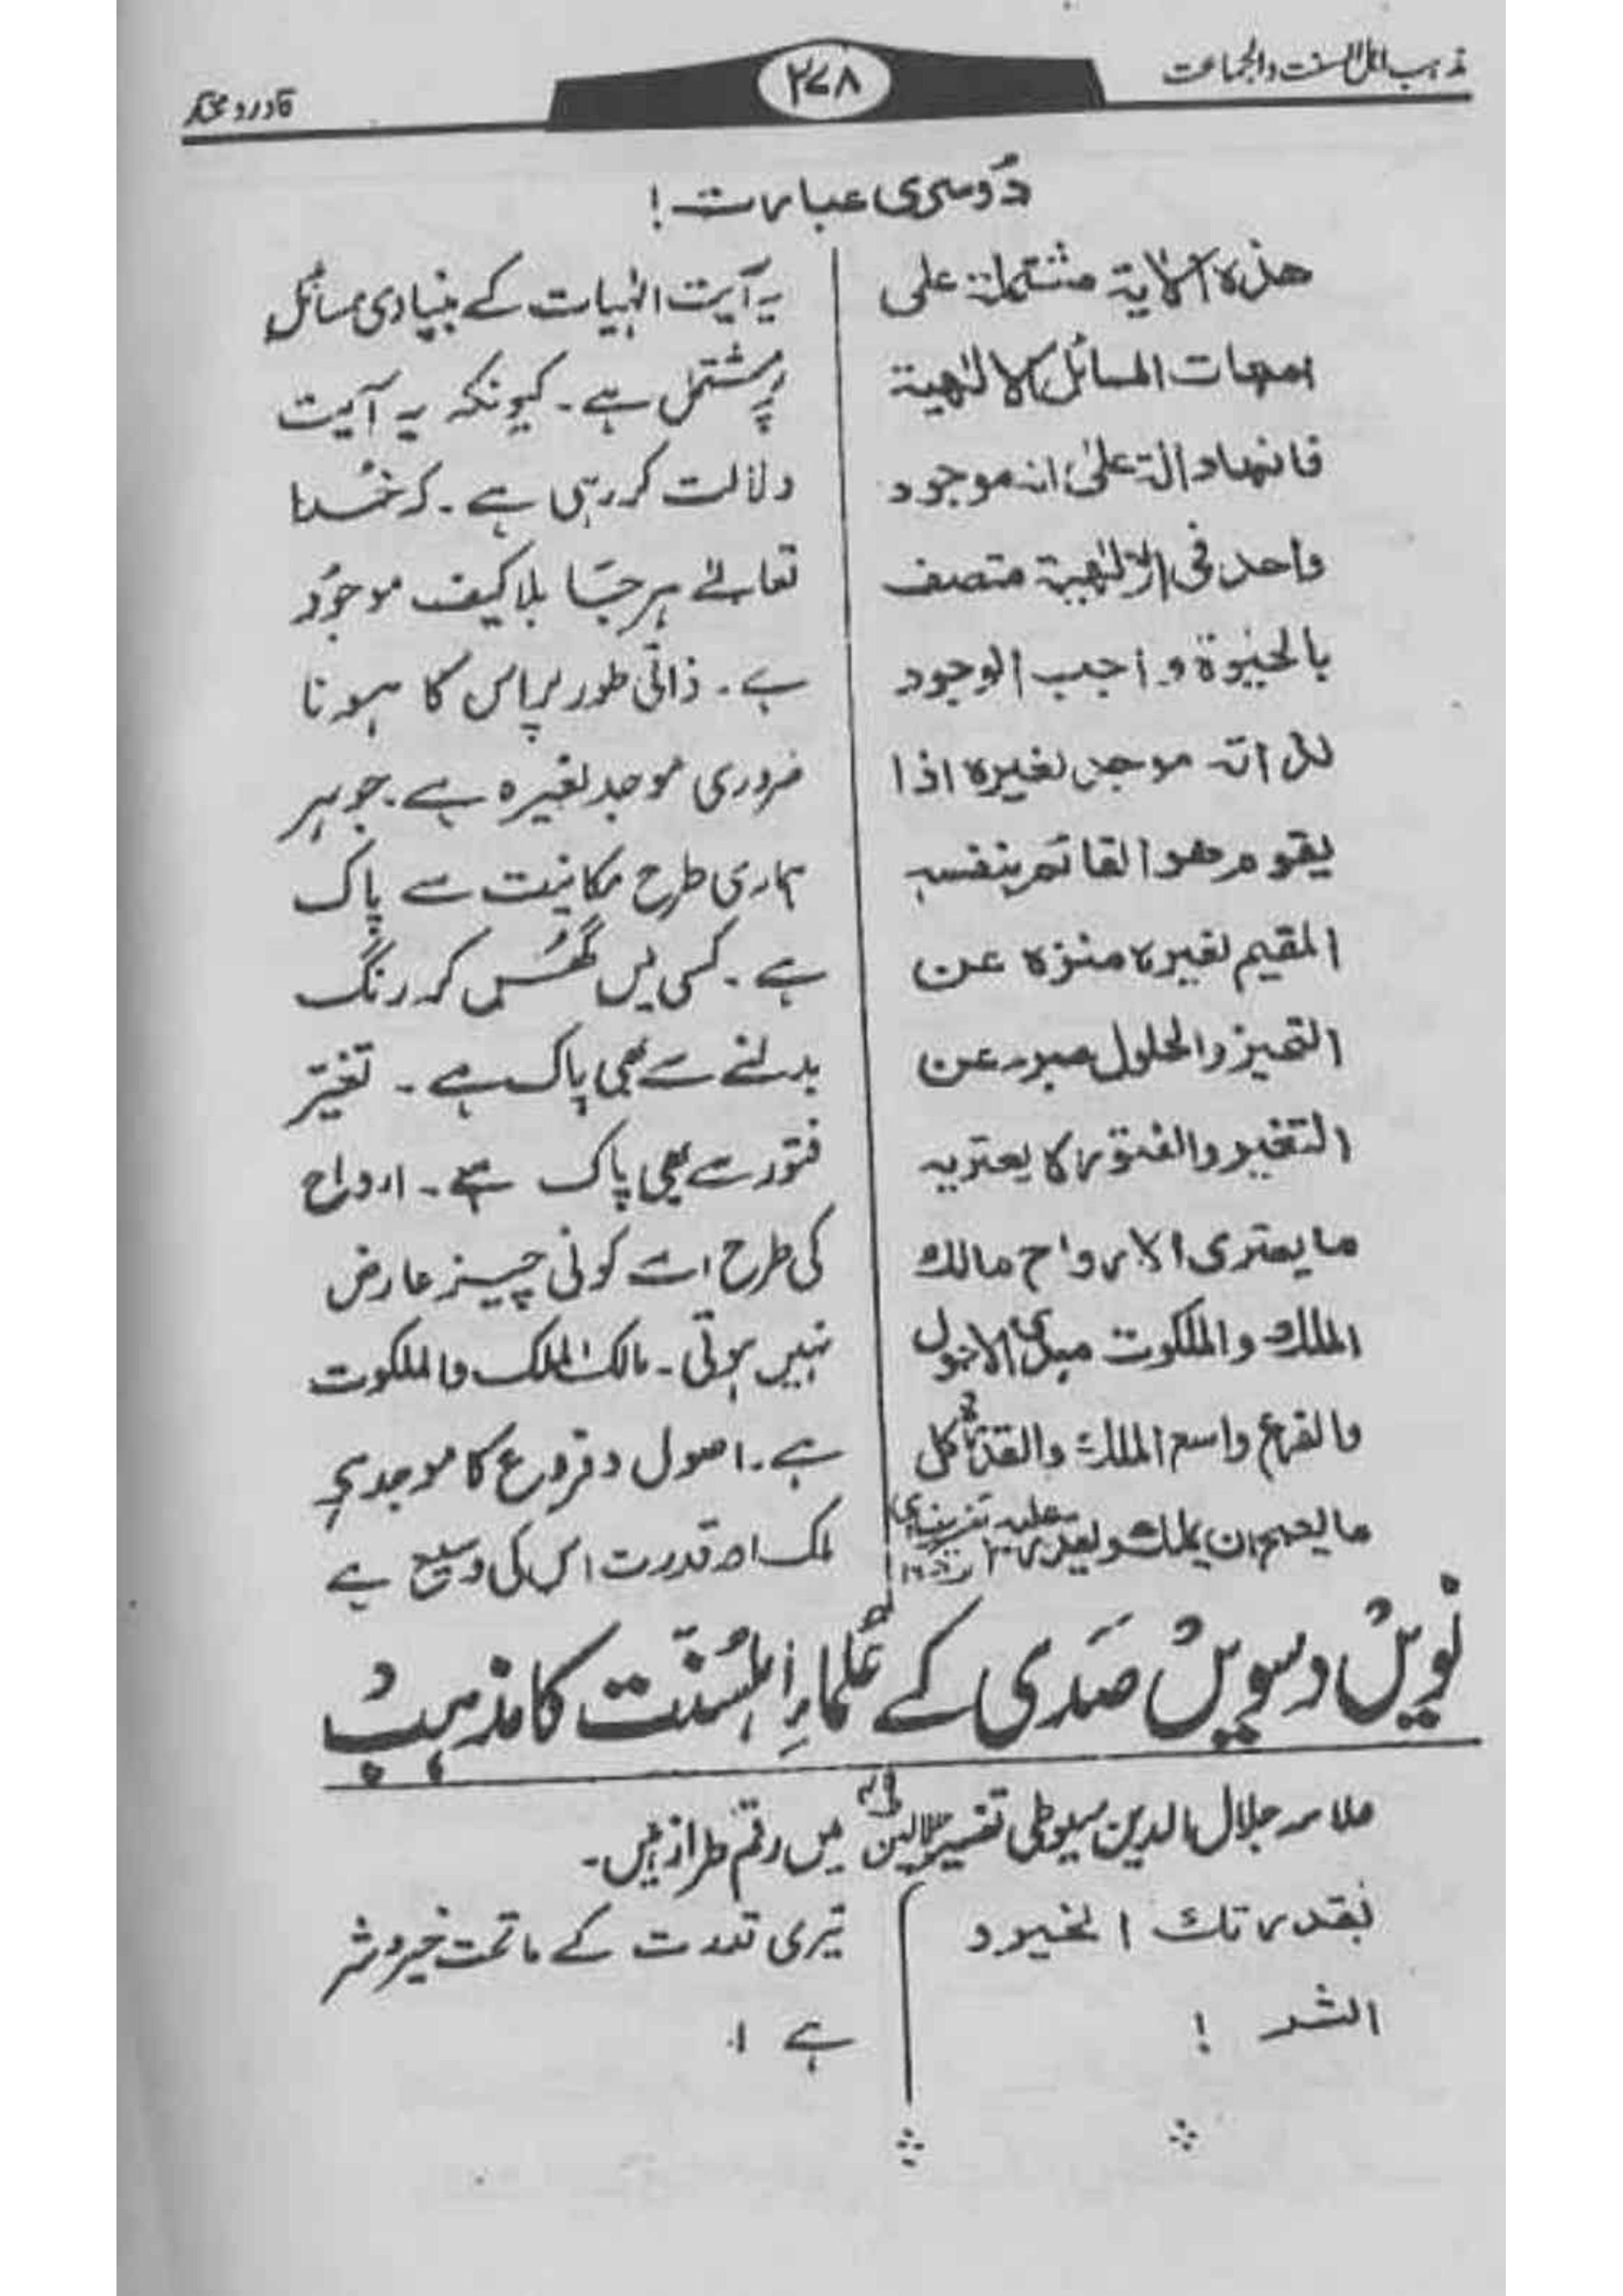 مذہب اہل السنت والجماعت
۲۷۸
قادر و مختار
دُوسری عبارت!
ھذہ الایۃ مشتملۃ علی
امھات المسائل الالٰھیۃ
فانھا دالۃ علیٰ انہ موجود
واحد فی الالٰھیۃ متصف
بالحیٰوۃ واجب الوجود
لذاتہ موجد لغیرہ اذا
یقوم ھو القائم بنفسہ
المقیم لغیرہ منزہ عن
التحیز والحلول مبرء عن
التغیر والفتور لا یعتریہ
ما یعتری الارواح مالک
الملک والملکوت مبدی الاصول
والفرع واسع الملک والقدرۃ کل
ما یصح ان یملک ویقدر علیہ
یہ آیت الہٰیات کے بنیادی مسائل
پر مشتمل ہے۔ کیونکہ یہ آیت
دلالت کر رہی ہے۔ کہ خُدا
تعالےٰ ہر جَا بلا کیف موجُود
ہے۔ ذاتی طور پر اس کا ہونا
ضروری موجد لغیرہ ہے۔ جوہر
ہماری طرح مکانیت سے پاک
ہے۔ کسی میں گھُس کر رنگ
بدلنے سے بھی پاک ہے۔ تغیّر
فتور سے بھی پاک ہے۔ ارواح
کی طرح اسے کوئی چیز عارض
نہیں ہوتی۔ مالک الملک والملکوت
ہے۔ اصول و فروع کا موجد ہے
ملک اور قدرت اس کی وسیع ہے
نَویں دسویں صَدی کے عُلماءِ اہلسُنّت کا مذہب
علامہ جلال الدین سیوطی تفسیر جلالین میں رقم طراز ہیں۔
بقدرتک الخیر و
الشر !
تیری قدرت کے ماتحت خیر و شر
ہے ۱۰